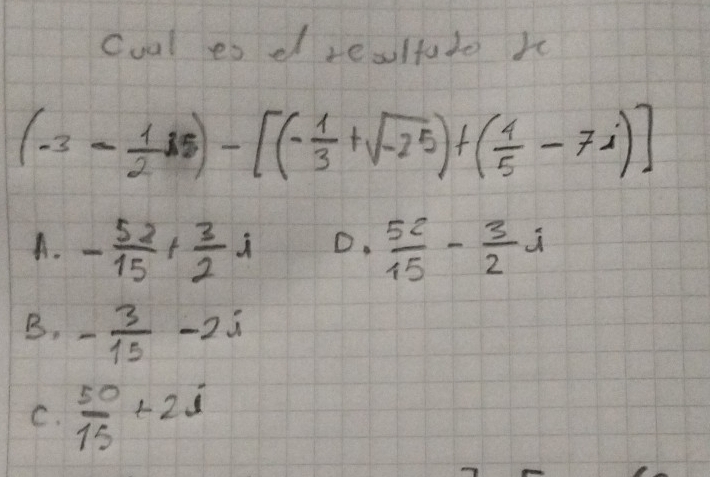 Cual es el resultado de
(-3 - 1/2 i) - [(-1/3 + √-25) + (4/5 - 7i)]
A. - 52/15 + 3/2 i D. 52/15 - 3/2 i
B. - 3/15 - 2i
C. 50/15 + 2i